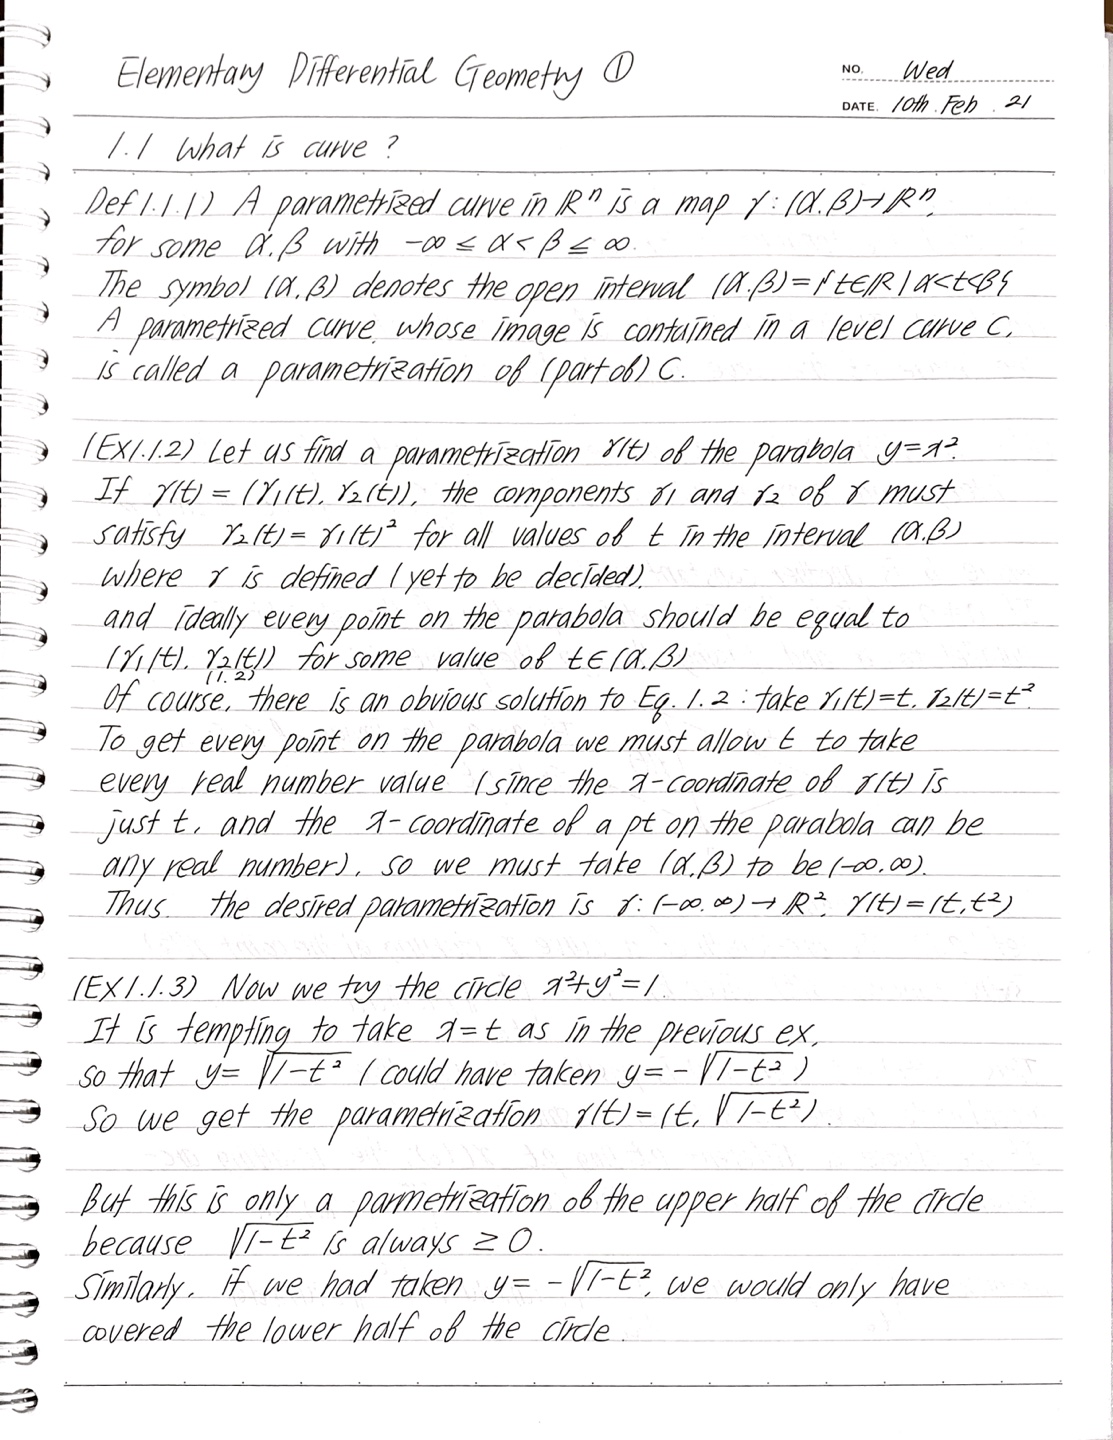 Elementary Differential Geometry ①
NO. Wed
DATE. 10th. Feb. 21
1.1 What is curve?
Def 1.1.1) A parametrized curve in ℝⁿ is a map γ: (α.β)→ℝⁿ,
for some α.β with -∞ ≤ α < β ≤ ∞.
The symbol (α.β) denotes the open interval (α.β)={t∈ℝ | α<t<β}
A parametrized curve, whose image is contained in a level curve C,
is called a parametrization of (part of) C.
(EX1.1.2) Let us find a parametrization γ(t) of the parabola y=x².
If γ(t) = (γ₁(t), γ₂(t)), the components γ₁ and γ₂ of γ must
satisfy γ₂(t) = γ₁(t)² for all values of t in the interval (α.β)
where γ is defined (yet to be decided),
and ideally every point on the parabola should be equal to
(γ₁(t), γ₂(t)) for some value of t∈(α.β)
(1.2)
Of course, there is an obvious solution to Eq. 1.2 : take γ₁(t)=t, γ₂(t)=t².
To get every point on the parabola we must allow t to take
every real number value (since the x-coordinate of γ(t) is
just t, and the x-coordinate of a pt on the parabola can be
any real number), so we must take (α.β) to be (-∞.∞).
Thus the desired parametrization is γ: (-∞.∞) → ℝ², γ(t)=(t,t²)
(EX1.1.3) Now we try the circle x²+y²=1.
It is tempting to take x=t as in the previous ex,
so that y= √1-t² (could have taken y= -√1-t²)
So we get the parametrization γ(t) = (t, √1-t²).
But this is only a parmetrization of the upper half of the circle
because √1-t² is always ≥ 0.
Similarly, if we had taken y= -√1-t², we would only have
covered the lower half of the circle.